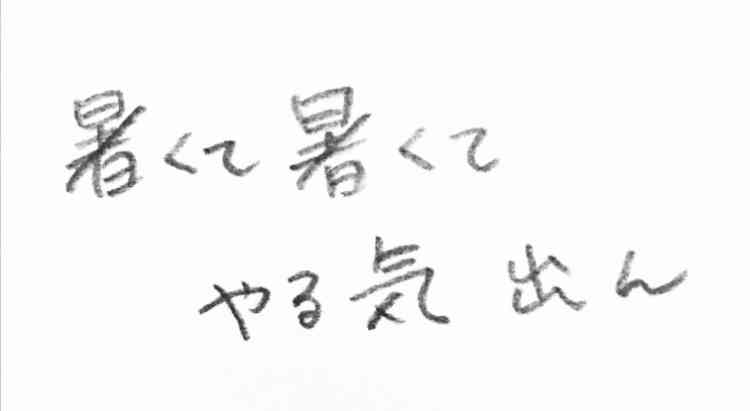 暑くて暑くて
やる気出ん